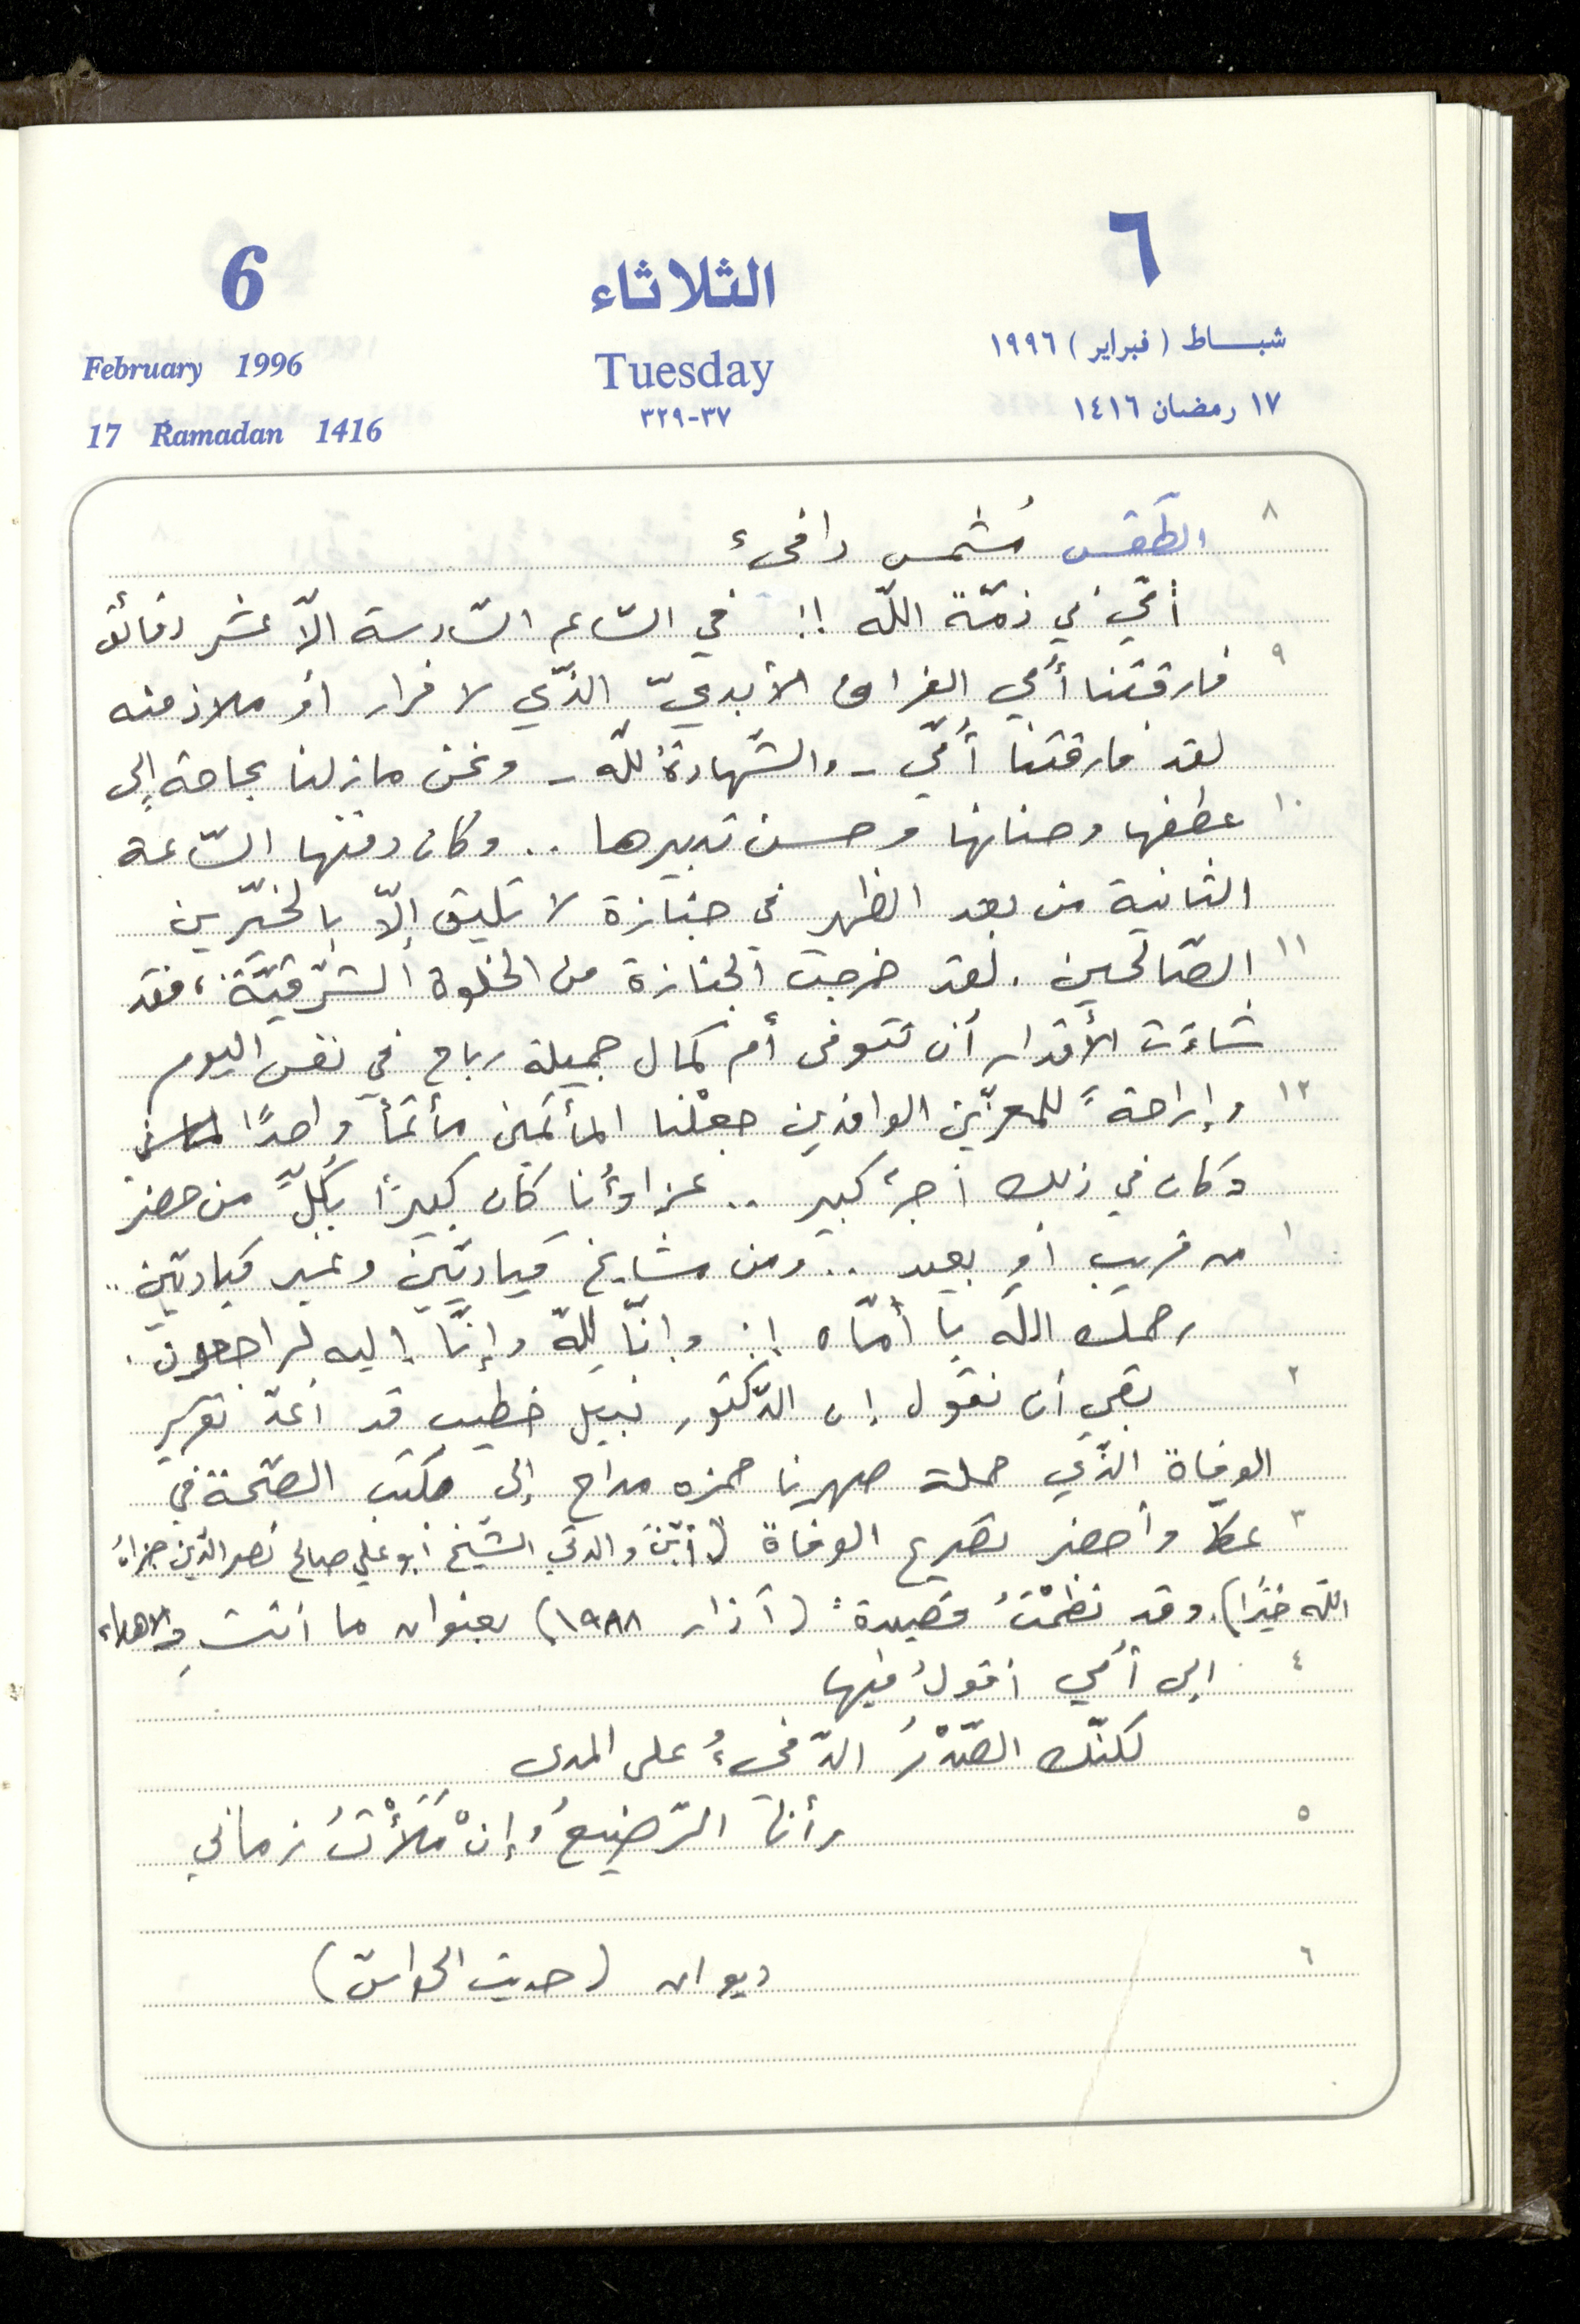 ٦
شباط (فبراير) ١٩٩٦
١٧ رمضان ١٤١٦
الثلاثاء
Tuesday
٣٧-٣٢٩
6
February 1996
17 Ramadan 1416
٨
الطقس مُشمس دافىء
أمّي في ذمّة اللّه !! في السّاعه السّادسة الاّ عشر دقائق
٩
فارقتنا أمّي الفراق الأبديّ الذّي لا فرار او ملاذ منه
لقد فارقتنا أُمّي - والشّهادةُ للّه - ونحن مازلنا بحاجة إلى
١٠
عطفها وحنانها وحسن تدبيرها .. وكان دفنها السّاعة
الثانية من بعد الظهر في جنازة لا تليق إلّا بالخيّرين
١١
الصّالحين . لقد خرجت الجنازة من الخلوة الشّرقيّة ، فقد
شاءَت الأقدار أن تتوفى أم كمال جميلة رباح في نفس اليوم
١٢
وإراحةً للمعزّين الوافدين جعلْنا المأتمَين مأتمًا واحدًا
وكان في ذلك أجرٌ كبير .. عزاؤُنا كان كبيرًا بكلّ من حضر
١
من قريب او بعيد .. ومن مشايخ قياديّين وغير قياديّين ..
رحمك اللّه يا أمّاه !! وإنّا للّه وإنّا إليه لراجعون .
٢
بقي أن نقول إن الدّكتور نبيل خطيب قد أعدّ تقرير
الوفاة الذّي حمله صهرنا حمزه مداح إلى مكتب الصّحة في
٣
عكّا وأحضر تصريح الوفاة (أبّنَ والدتي الشّيخ أبو علي صالح نصر الدّين جزاهُ
اللّه خيرًا). وقد نظمْتُ قصيدة (آذار ١٩٨٨) بعنوان ما أنتِ والاهداء
٤
الى أمّي أقولُ فيها
لكنّك الصّدْرُ الدّفيءُ على المدى
٥
وأنا الرّضيعُ وإنْ مَلَأْتُ زماني
٦
ديوان (حديث الحواسّ)